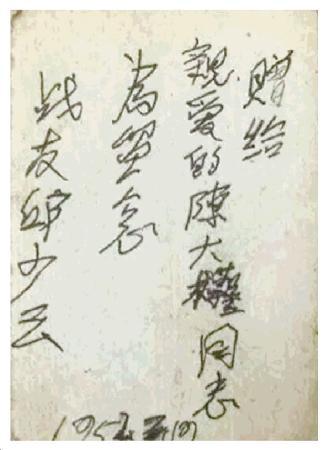 贈给
親愛的陳大權同志
為留念
战友邱少云